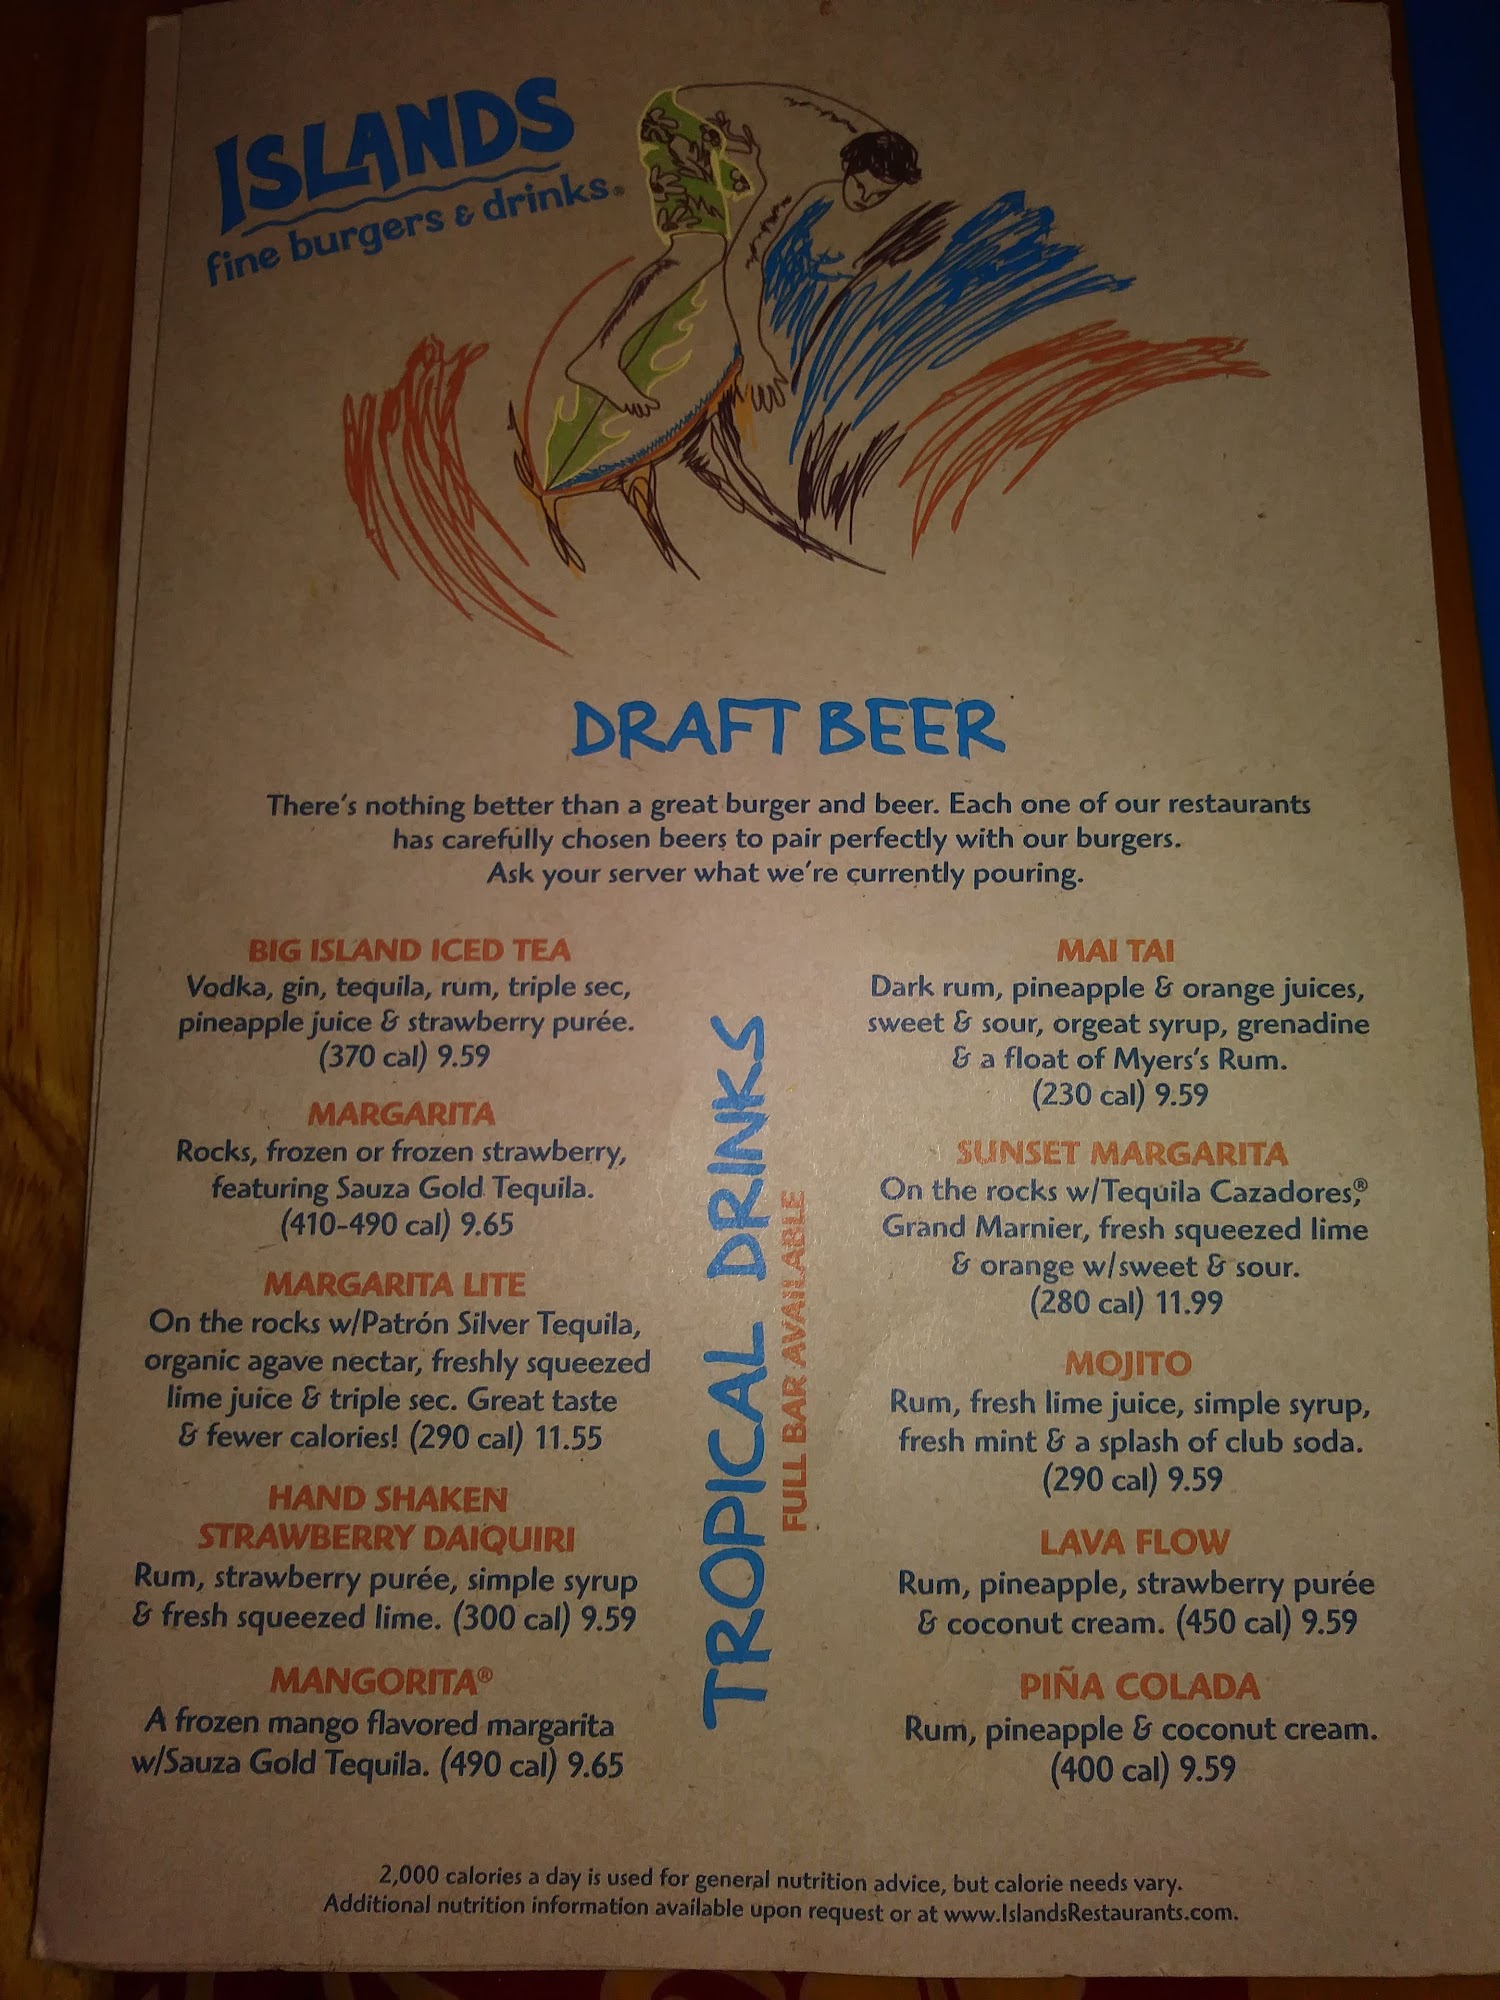 ISLANDS
fine burgers & drinks®
DRAFT BEER
There's nothing better than a great burger and beer. Each one of our restaurants
has carefully chosen beers to pair perfectly with our burgers.
Ask your server what we're currently pouring.
BIG ISLAND ICED TEA
Vodka, gin, tequila, rum, triple sec,
pineapple juice & strawberry purée.
(370 cal) 9.59
MARGARITA
Rocks, frozen or frozen strawberry,
featuring Sauza Gold Tequila.
(410-490 cal) 9.65
MARGARITA LITE
On the rocks w/Patrón Silver Tequila,
organic agave nectar, freshly squeezed
lime juice & triple sec. Great taste
& fewer calories! (290 cal) 11.55
HAND SHAKEN
STRAWBERRY DAIQUIRI
Rum, strawberry purée, simple syrup
& fresh squeezed lime. (300 cal) 9.59
MANGORITA®
A frozen mango flavored margarita
w/Sauza Gold Tequila. (490 cal) 9.65
TROPICAL DRINKS
FULL BAR AVAILABLE
MAI TAI
Dark rum, pineapple & orange juices,
sweet & sour, orgeat syrup, grenadine
& a float of Myers's Rum.
(230 cal) 9.59
SUNSET MARGARITA
On the rocks w/Tequila Cazadores,®
Grand Marnier, fresh squeezed lime
& orange w/sweet & sour.
(280 cal) 11.99
MOJITO
Rum, fresh lime juice, simple syrup,
fresh mint & a splash of club soda.
(290 cal) 9.59
LAVA FLOW
Rum, pineapple, strawberry purée
& coconut cream. (450 cal) 9.59
PIÑA COLADA
Rum, pineapple & coconut cream.
(400 cal) 9.59
2,000 calories a day is used for general nutrition advice, but calorie needs vary.
Additional nutrition information available upon request or at www.IslandsRestaurants.com.